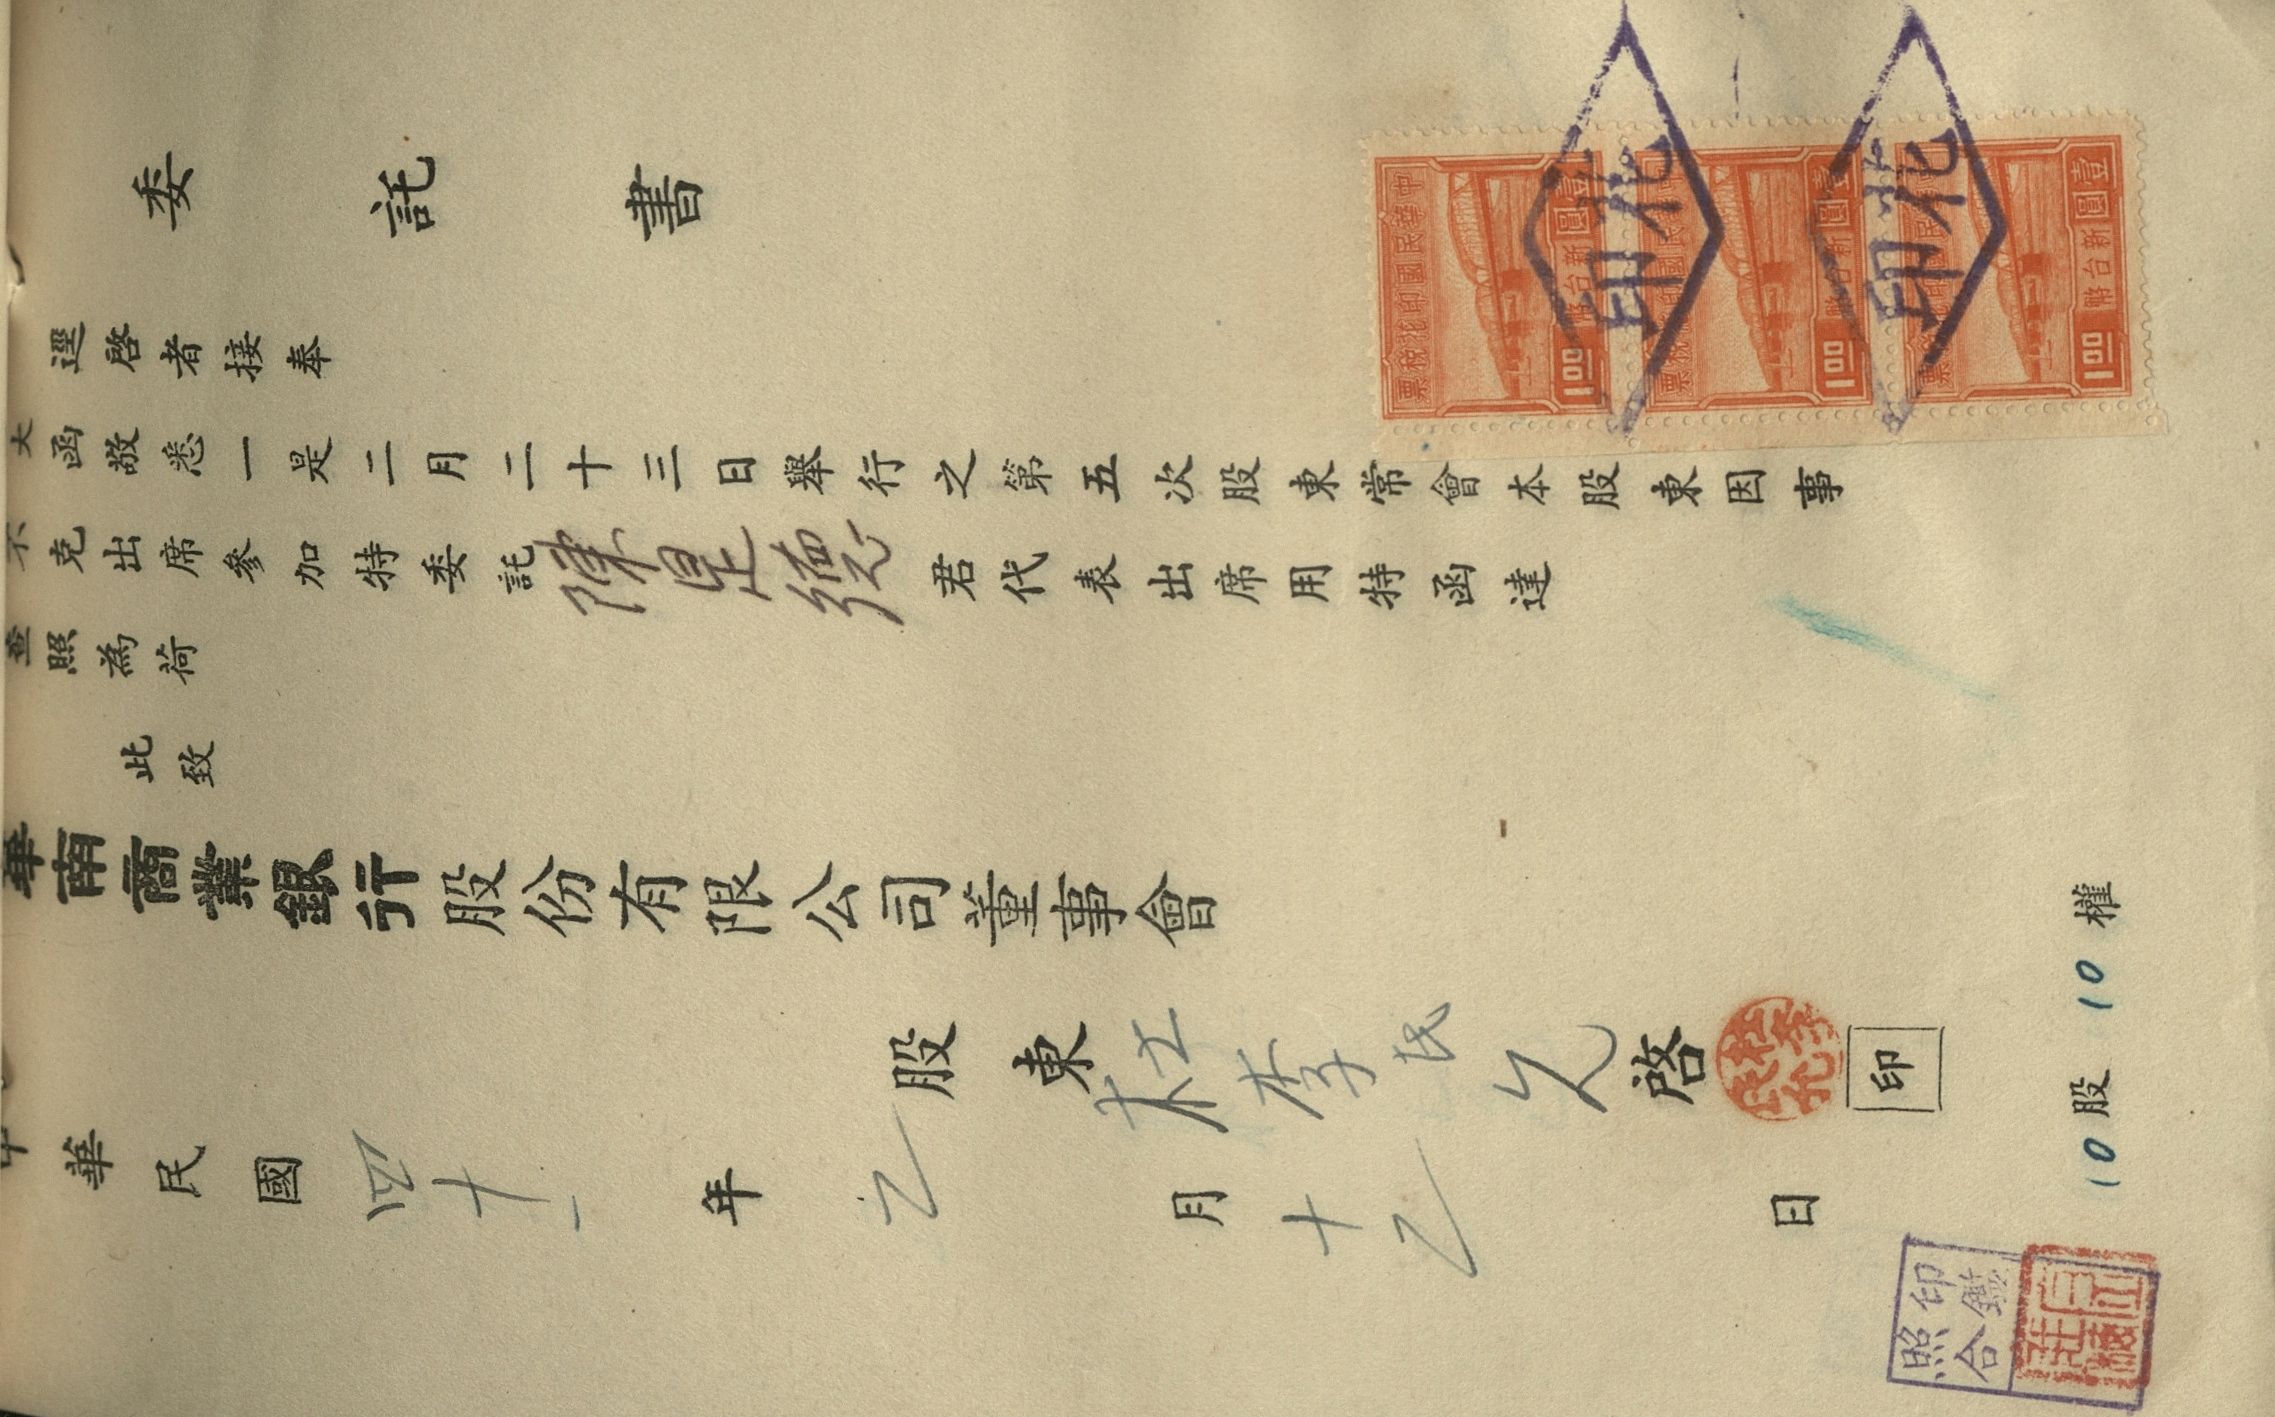 委託書
逕啓者接奉
大函敬悉一是二月二十三日舉行之第五次股東常會本股東因事
不克出席參加特委託陳是德君代表出席用特函達
查照為荷
此致
華南商業銀行股份有限公司董事會
股東杜李氏久啓
印
中華民國四十一年乙月十乙日
10股 10權
中華民國印花稅票
壹圓新台幣
1.00
中華民國印花稅票
壹圓新台幣
1.00
壹圓新台幣
1.00
北印
北印
印鑑
照合